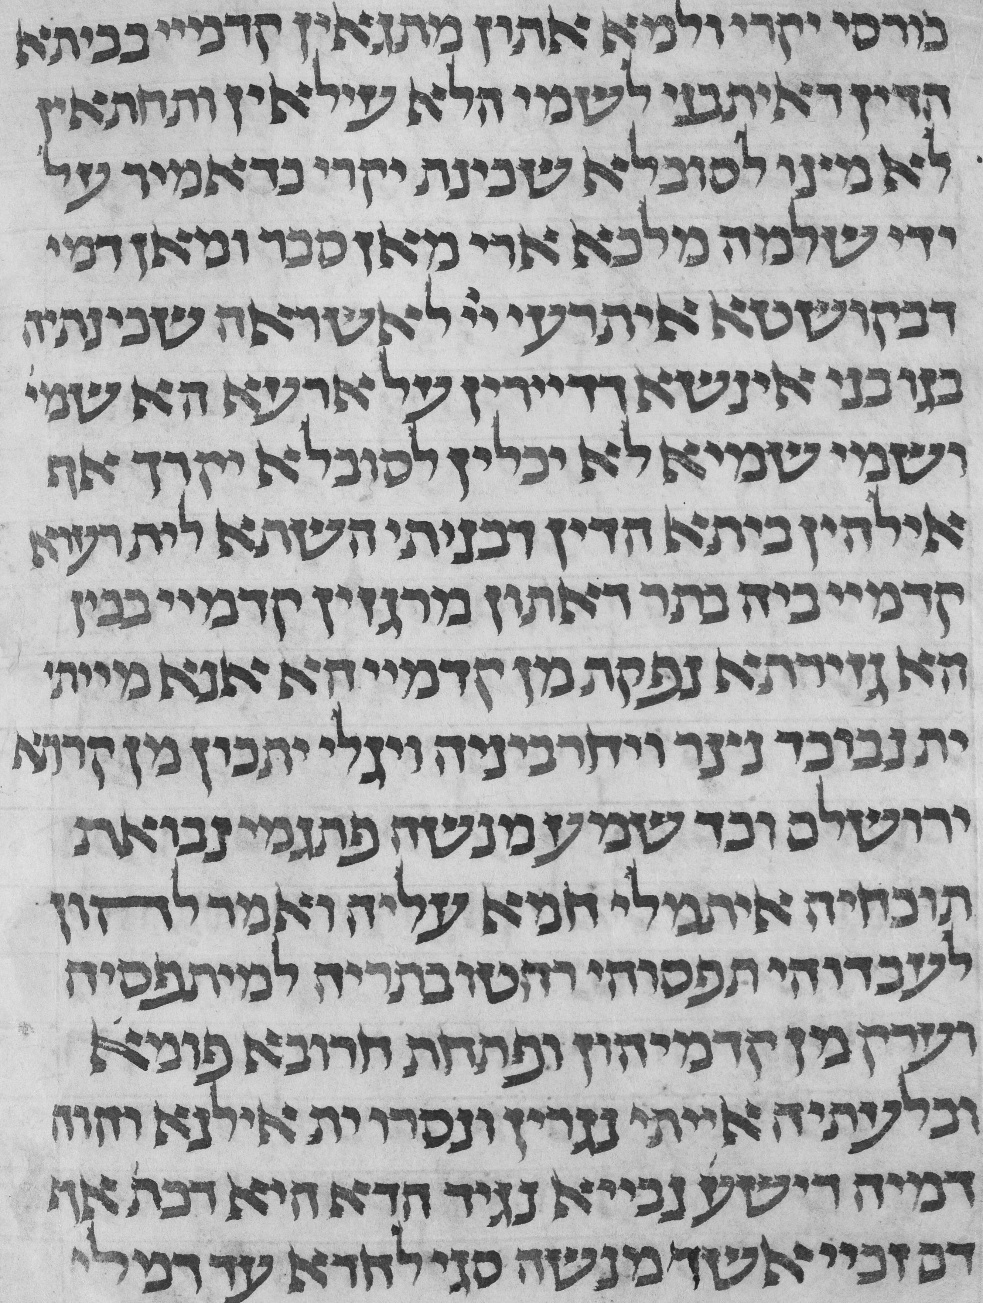 כורסי יקרי ולמא אתון מתגאין קדמיי בביתא
הדין דאיתבני לשמי הלא עילאין ותחתאין
לא מינו לסוברלא שכינת יקרי כדאמיר על
ידי שלמה מלכא ארי מאן סבר ומאן דמי
דבקושטא איתרעי יי לאשראה שכינתיה
בגו בני אינשא דדיירין על ארעא הא שמי
ושמי שמיא לא יכלין לסוברלא יקרך אף
אילהין ביתא הדין דבניתי השתא לית רעוא
קדמיי ביה בתר דאתון מרגזין קדמיי בכין
הא גזירתא נפקת מן קדמיי הא אנא מייתי
ית נבוכד נינר ויחרביניה ויגלי יתכון מן קרתא
ירושלם וכד שמע מנשה פתגמי נבואת
תוכחיה איתמלי חמא עליה ואמר להון
לעבדוהי תפסוהי רהטו בתריה למיתפסיה
וערק מן קדמיהון ופתחת חרובא פומא
ובלעתיה אייתי נגרין ונסרו ית אילנא והוה
דמיה דישע נבייא נגיד הדא היא דכת אף
דם זכיי אשד מנשה סגי לחדא עד דמלי